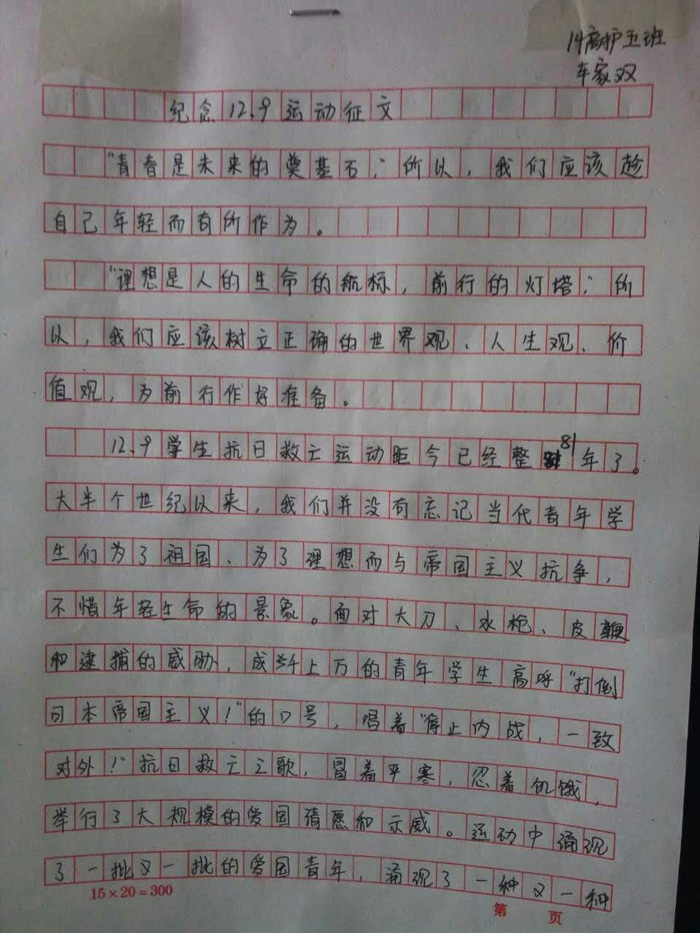 14高护五班
车家双
纪念12、9运动征文
"青春是未来的奠基石，"所以，我们应该趁
自己年轻而有所作为。
"理想是人的生命的航标，前行的灯塔，"所
以，我们应该树立正确的世界观、人生观、价
值观，为前行作好准备。
12、9学生抗日救亡运动距今已经整81年了。
大半个世纪以来，我们并没有忘记当代青年学
生们为了祖国、为了理想而与帝国主义抗争，
不惜年轻生命的景象。面对大刀、水枪、皮鞭
和逮捕的威胁，成千上万的青年学生高呼"打倒
日本帝国主义！"的口号，唱着"停止内战，一致
对外！"抗日救亡之歌，冒着严寒，忍着饥饿，
举行了大规模的爱国请愿和示威。运动中涌现
了一批又一批的爱国青年，涌现了一种又一种
15×20=300
第 页